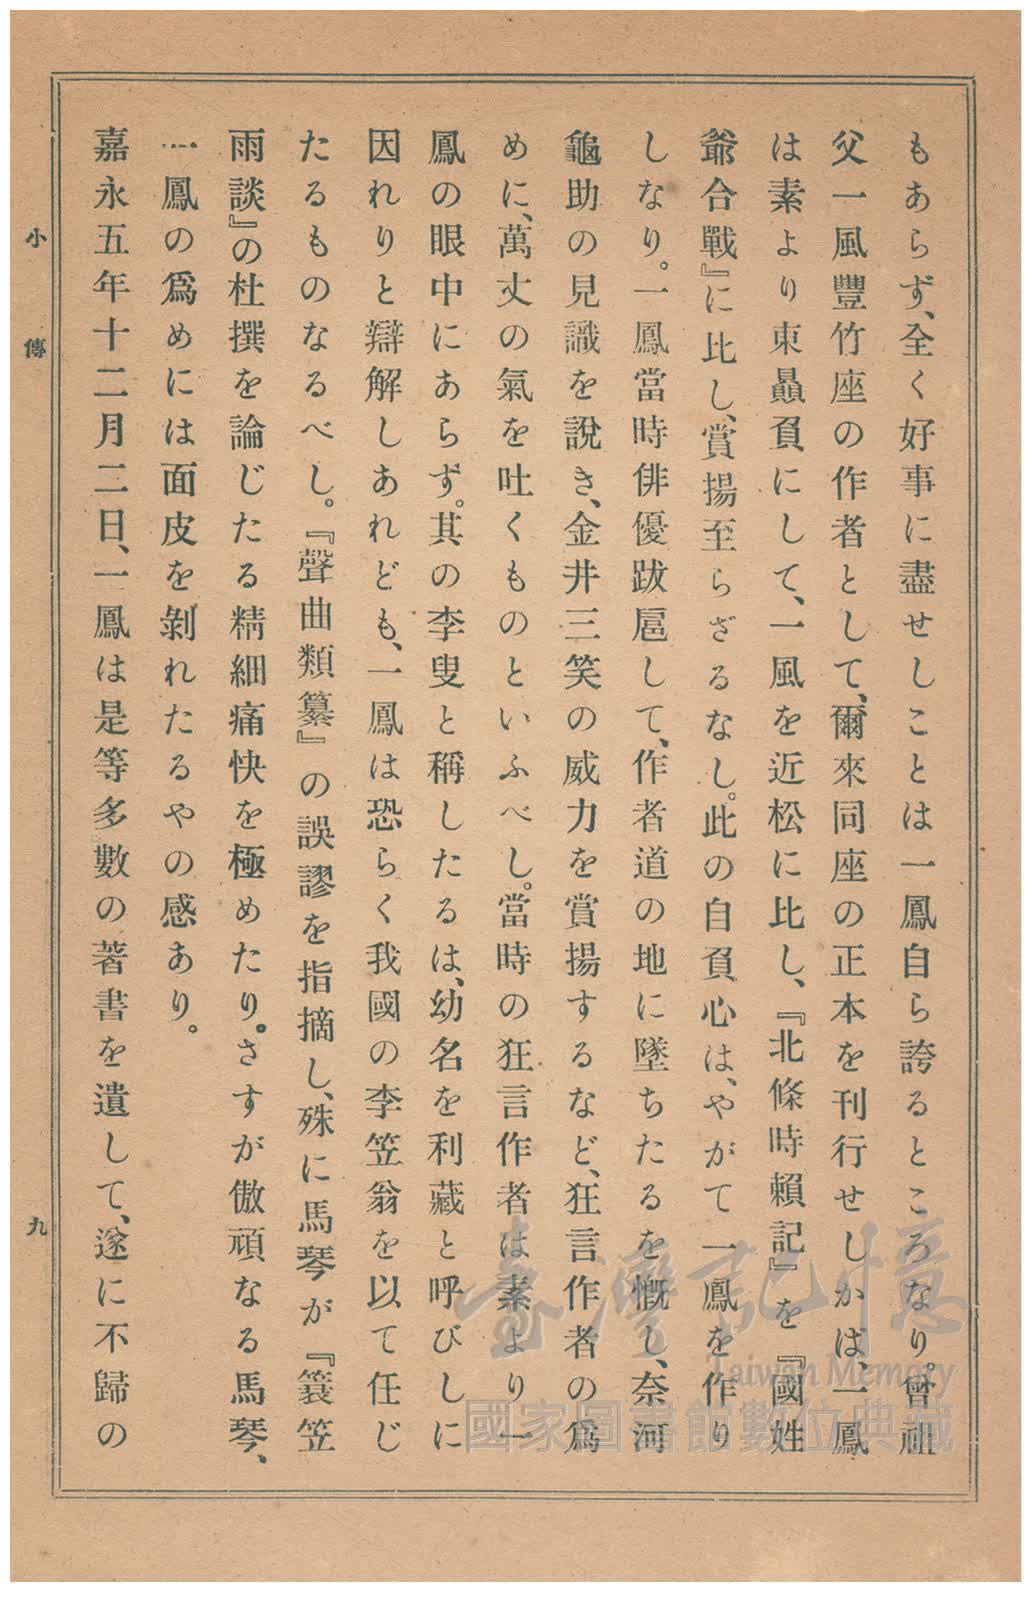 もあらず、全く好事に盡せしことは一鳳自ら誇るところなり。曾祖
父一風豐竹座の作者として、爾來同座の正本を刊行せしかば、一鳳
は素より東贔負にして、一風を近松に比し、『北條時賴記』を『國姓
爺合戰』に比し、賞揚至らざるなし。此の自負心は、やがて一鳳を作り
しなり。一鳳當時俳優跋扈して、作者道の地に墜ちたるを慨し、奈河
龜助の見識を說き、金井三笑の威力を賞揚するなど、狂言作者の爲
めに、萬丈の氣を吐くものといふべし。當時の狂言作者は素より一
鳳の眼中にあらず。其の李叟と稱したるは、幼名を利藏と呼びしに
因れりと辯解しあれども、一鳳は恐らく我國の李笠翁を以て任じ
たるものなるべし。『聲曲類纂』の誤謬を指摘し、殊に馬琴が『簑笠
雨談』の杜撰を論じたる精細痛快を極めたり。さすが傲頑なる馬琴、
一鳳の爲めには面皮を剝れたるやの感あり。
嘉永五年十二月二日、一鳳は是等多數の著書を遺して、遂に不歸の
小傳
九
臺灣記憶
Taiwan Memory
國家圖書館數位典藏